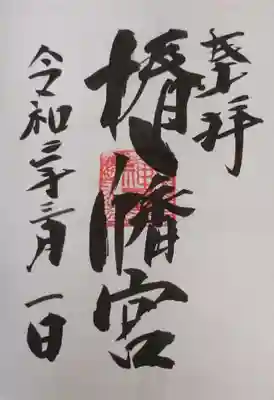 奉拝
椿八幡宮
令和二年三月一日